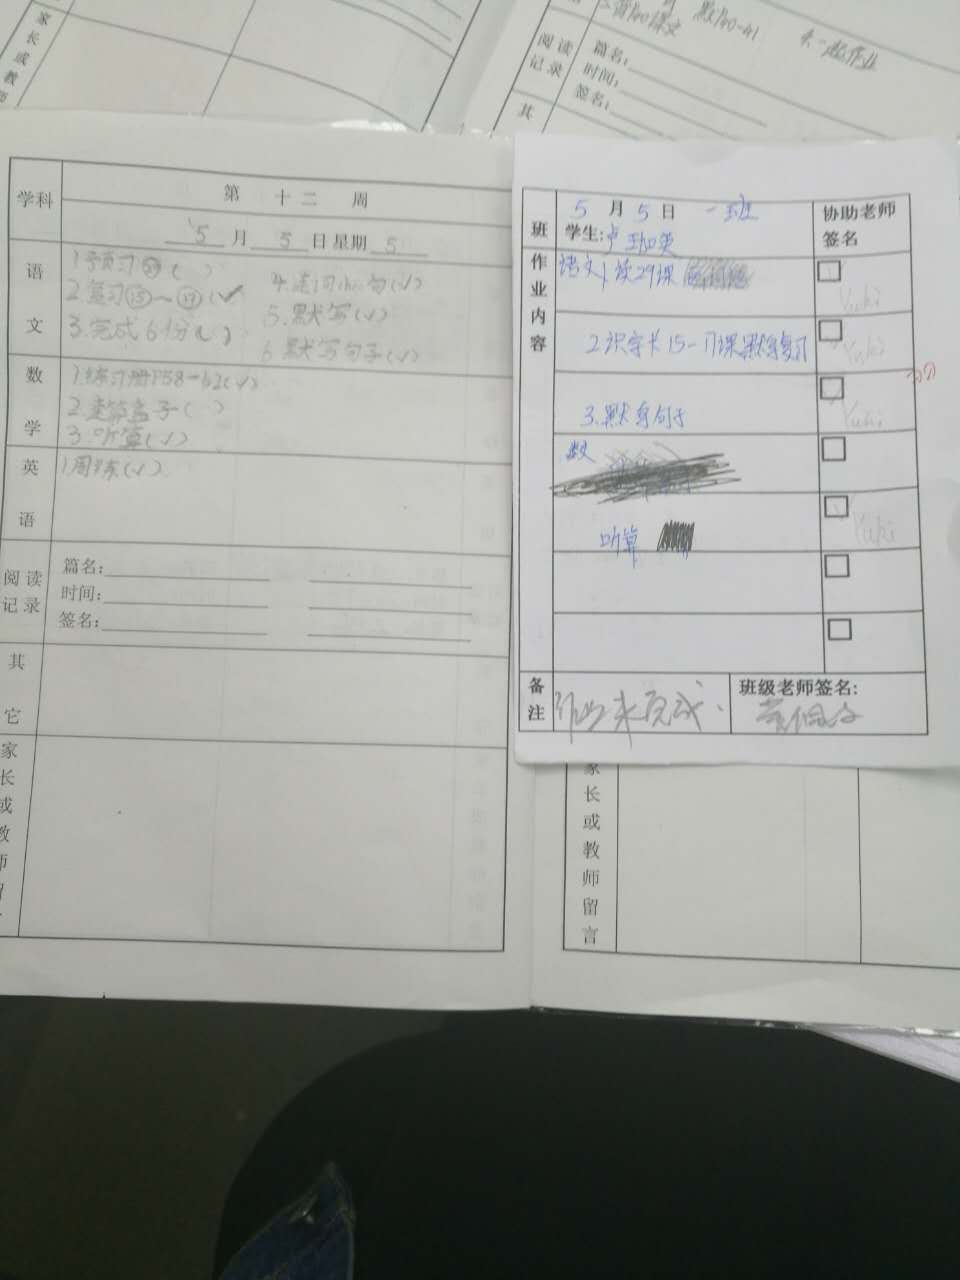 家
长
或
教
师
默P40-41
阅读
记录
篇名:
时间:
签名:
其
学科
第 十二 周
5 月 5 日 星期 5
语
文
1.预习㉙( )
2.复习⑮~⑰(✓
3.完成61分( )
5.默写(✓)
6.默写句子(✓)
数
学
1.练习册P58-62(✓)
3.听算(✓)
英
语
1.周练(✓)
阅读
记录
篇名:
时间:
签名:
其
它
家
长
或
教
师
班
5 月 5 日 一班
学生:
协助老师
签名
作
业
内
容
语文 1.读29课
Yuki
2.识字卡15-17课默写复习
Yuki
3.默写句子
Yuki
数
听算
Yuki
备
注
作业未完成.
班级老师签名:
家
长
或
教
师
留
言